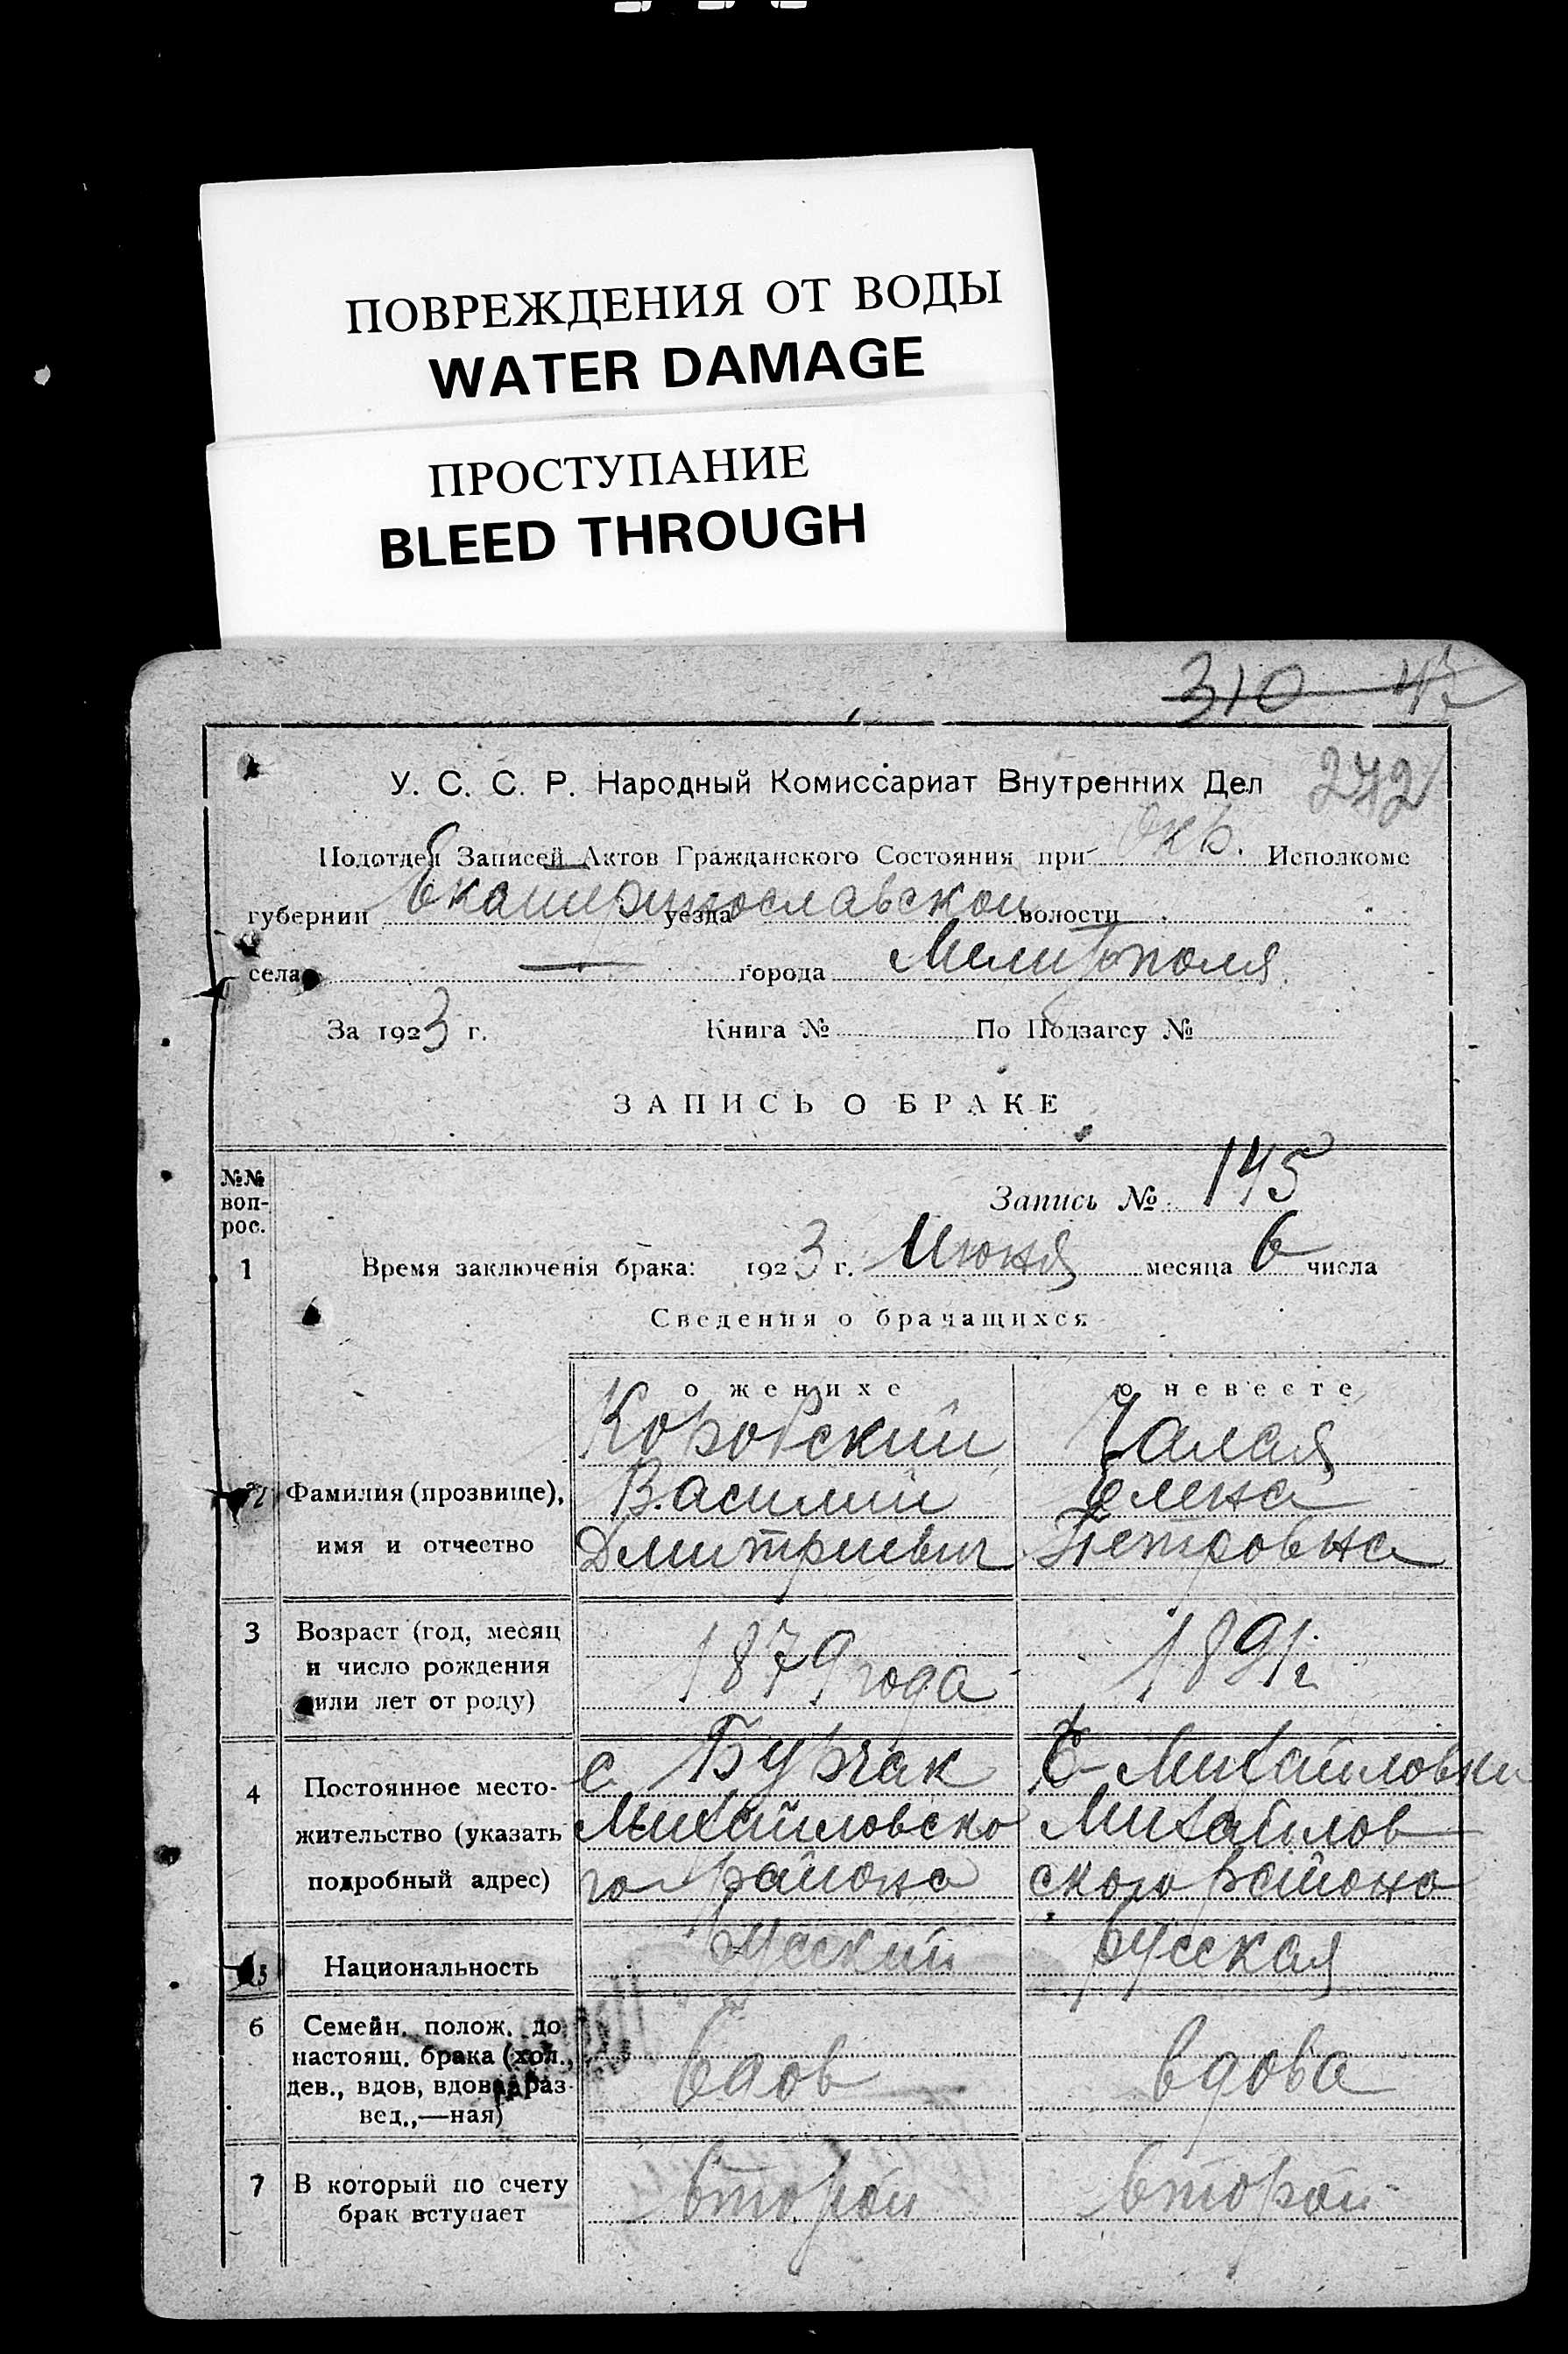 ПОВРЕЖДЕНИЯ ОТ ВОДЫ
WATER DAMAGE
ПРОСТУПАНИЕ
BLEED THROUGH
310
У. С. С. Р. Народный Комиссариат Внутренних Дел
Подотдел Записей Актов Гражданского Состояния при Окр. Исполкоме
губернии Екатеринославской уезда волости
села — города Мелитополя.
За 1923 г. Книга № По Подзагсу №
ЗАПИСЬ О БРАКЕ
№№ воп-рос.
Запись № 145
1 Время заключенія брака: 1923 г. Июня месяца 6 числа
Сведения о брачащихся
о женихе о невесте
Коровский Чалая
Фамилия (прозвище), Василий Елена
имя и отчество Дмитриевич Петровна
3 Возраст (год, месяц
и число рождения 1879 года 1891 г.
или лет от роду)
с. Бурчак С. Михайловки
4 Постоянное место-
жительство (указать Михайловско Михайлов
подробный адрес) го района ского района
5 Национальность русский русская
6 Семейн. полож. до
настоящ. брака (хол., вдов вдова
дев., вдов, вдова, раз-
вед.,—ная)
7 В который по счету второй второй
брак вступает